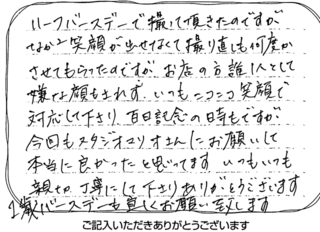 ハーフバースデーで撮って頂きたのですが
なかなか笑顔が出せなくて撮り直しも何度か
させてもらったのですが、お店の方誰1人として
嫌な顔もされず、いつもニコニコ笑顔で
対応して下さり、百日記念の日もですが
今回もスタジオマリオさんにお願いして
本当に良かったと思ってます いつもいつも
親切、丁寧にして下さりありがとうございます
1歳バースデーも宜しくお願い致します
ご記入いただきありがとうございます